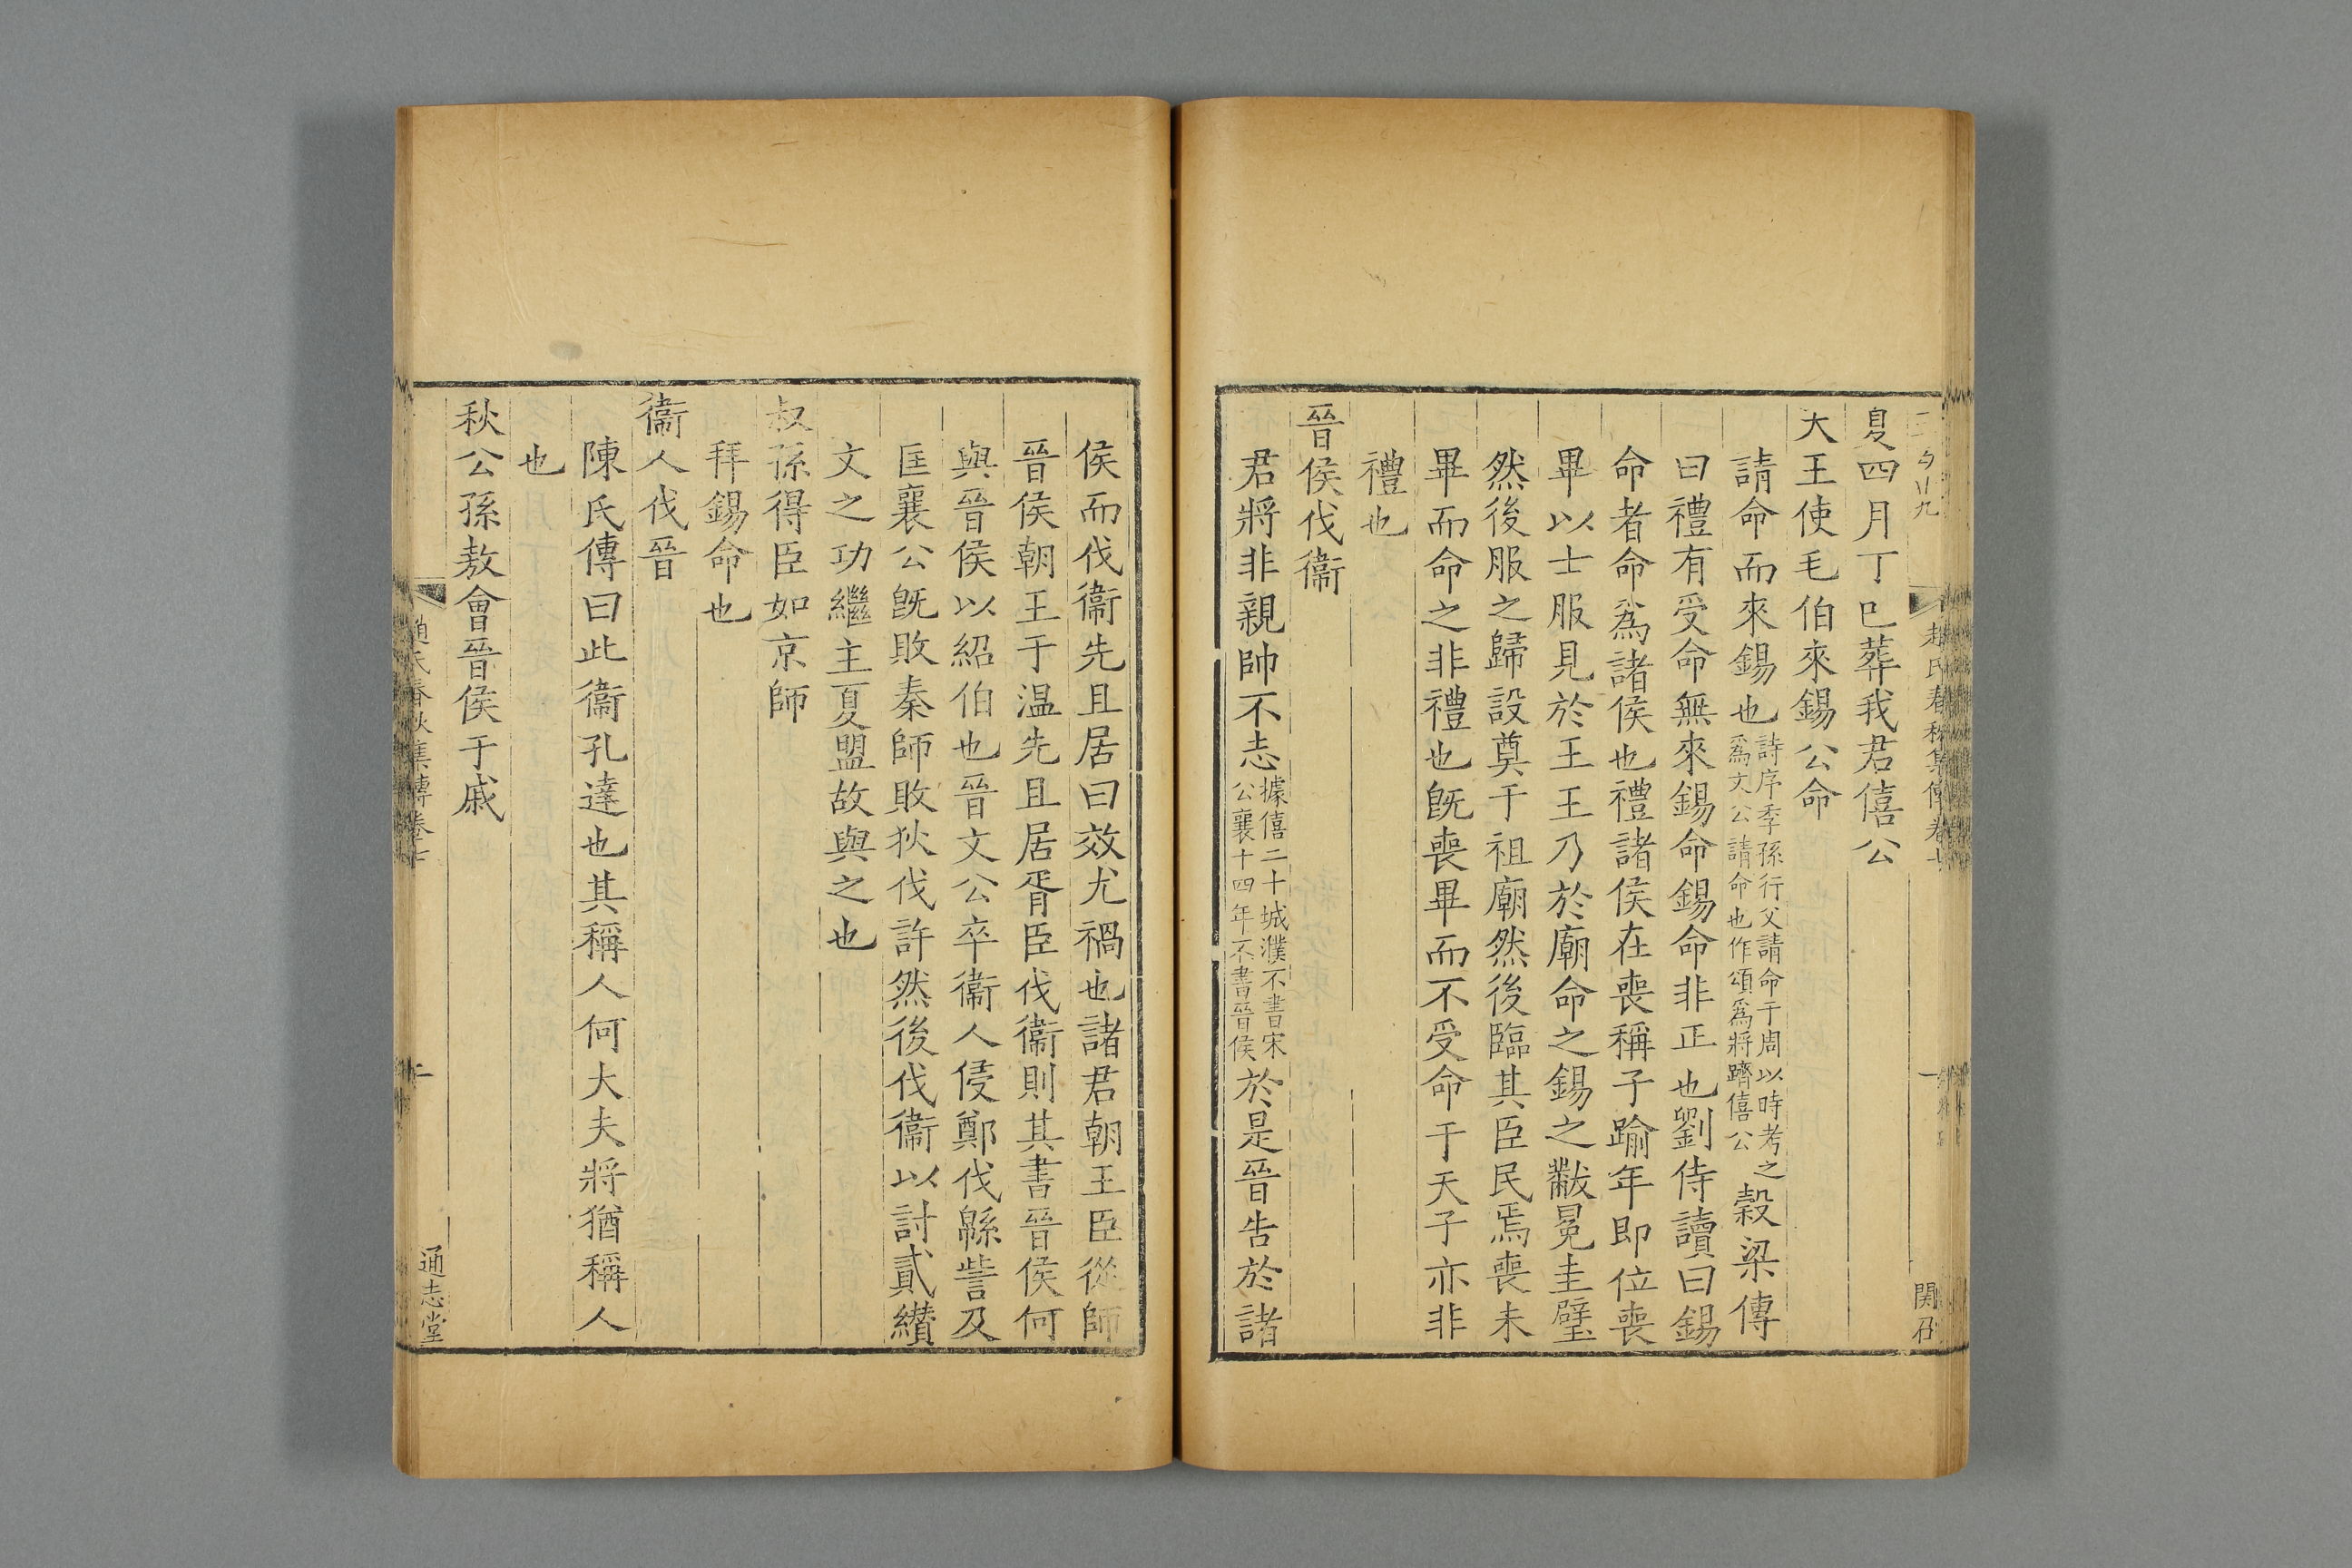 夏四月丁巳葬我君僖公
大王使毛伯來錫公命
請命而來錫也詩序季孫行父請命于周以時考之爲文公請命也作頌爲將躋僖公榖梁傳
曰禮有受命無來錫命錫命非正也劉侍讀曰錫
命者命爲諸侯也禮諸侯在喪稱子踰年即位喪
畢以士服見於王王乃於廟命之錫之黻冕圭璧
然後服之歸設奠于祖廟然後臨其臣民焉喪未
畢而命之非禮也旣喪畢而不受命于天子亦非
禮也
晉侯伐衞
君將非親帥不志據僖二十城濮不書宋公襄十四年不書晉侯於是晉告於諸
侯而伐衞先且居曰效尤禍也諸君朝王臣從師
晉侯朝王于温先且居胥臣伐衞則其書晉侯何
與晉侯以紹伯也晉文公卒衞人侵鄭伐緜訾及
匡襄公旣敗秦師敗狄伐許然後伐衞以討貳纉
文之功繼主夏盟故與之也
叔孫得臣如京師
拜錫命也
衞人伐晉
陳氏傳曰此衞孔達也其稱人何大夫將猶稱人
也
秋公孫敖會晉侯于戚
趙氏春秋集傳卷七
通志堂